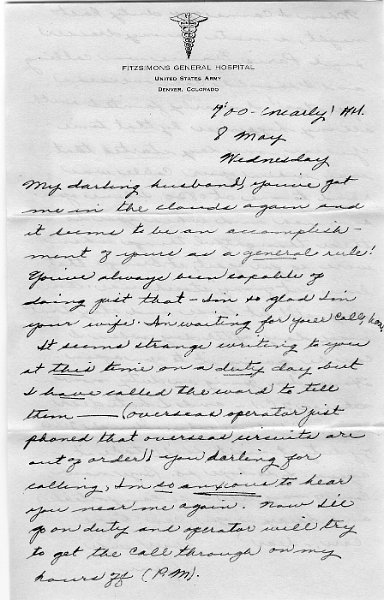 FITZSIMONS GENERAL HOSPITAL
UNITED STATES ARMY
DENVER, COLORADO
7:00 - (nearly) AM.
8 May
Wednesday
My darling husband, you've got
me in the clouds again and
it seems to be an accomplish-
ment of yours as a general rule!
You've always been capable of
doing just that - I'm so glad I'm
your wife. I'm waiting for your call, now.
It seems strange writing to you
at this time on a duty day but
I have called the ward to tell
them — (overseas operator just
phoned that overseas circuits are
out of order) you darling for
calling, I'm so anxious to hear
you near me again. Now I'll
go on duty and operator will try
to get the call through on my
hours off (P.M.).